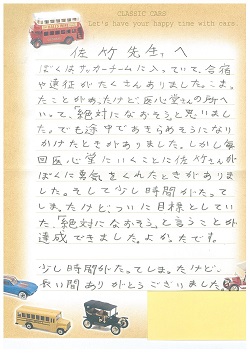 CLASSIC CARS
Let's have your happy time with cars.
佐竹先生へ
ぼくはサッカーチームに入っていて、合宿
や遠征がたくさんありました。こまっ
たことがあったけど医心堂さんの所へ
いって、「絶対になおそう」と思いました。
でも途中であきらめそうになり
かけたときがありました。しかし毎
回医心堂にいくごとに佐竹さんが
ぼくに勇気をくれたときがありまし
た。そして少し時間がたって
しまったけど、ついに目標としてい
た、「絶対になおそう」と言うことが
達成できました。よかったです。
少し時間がたってしまったけど、
長い間ありがとうございました